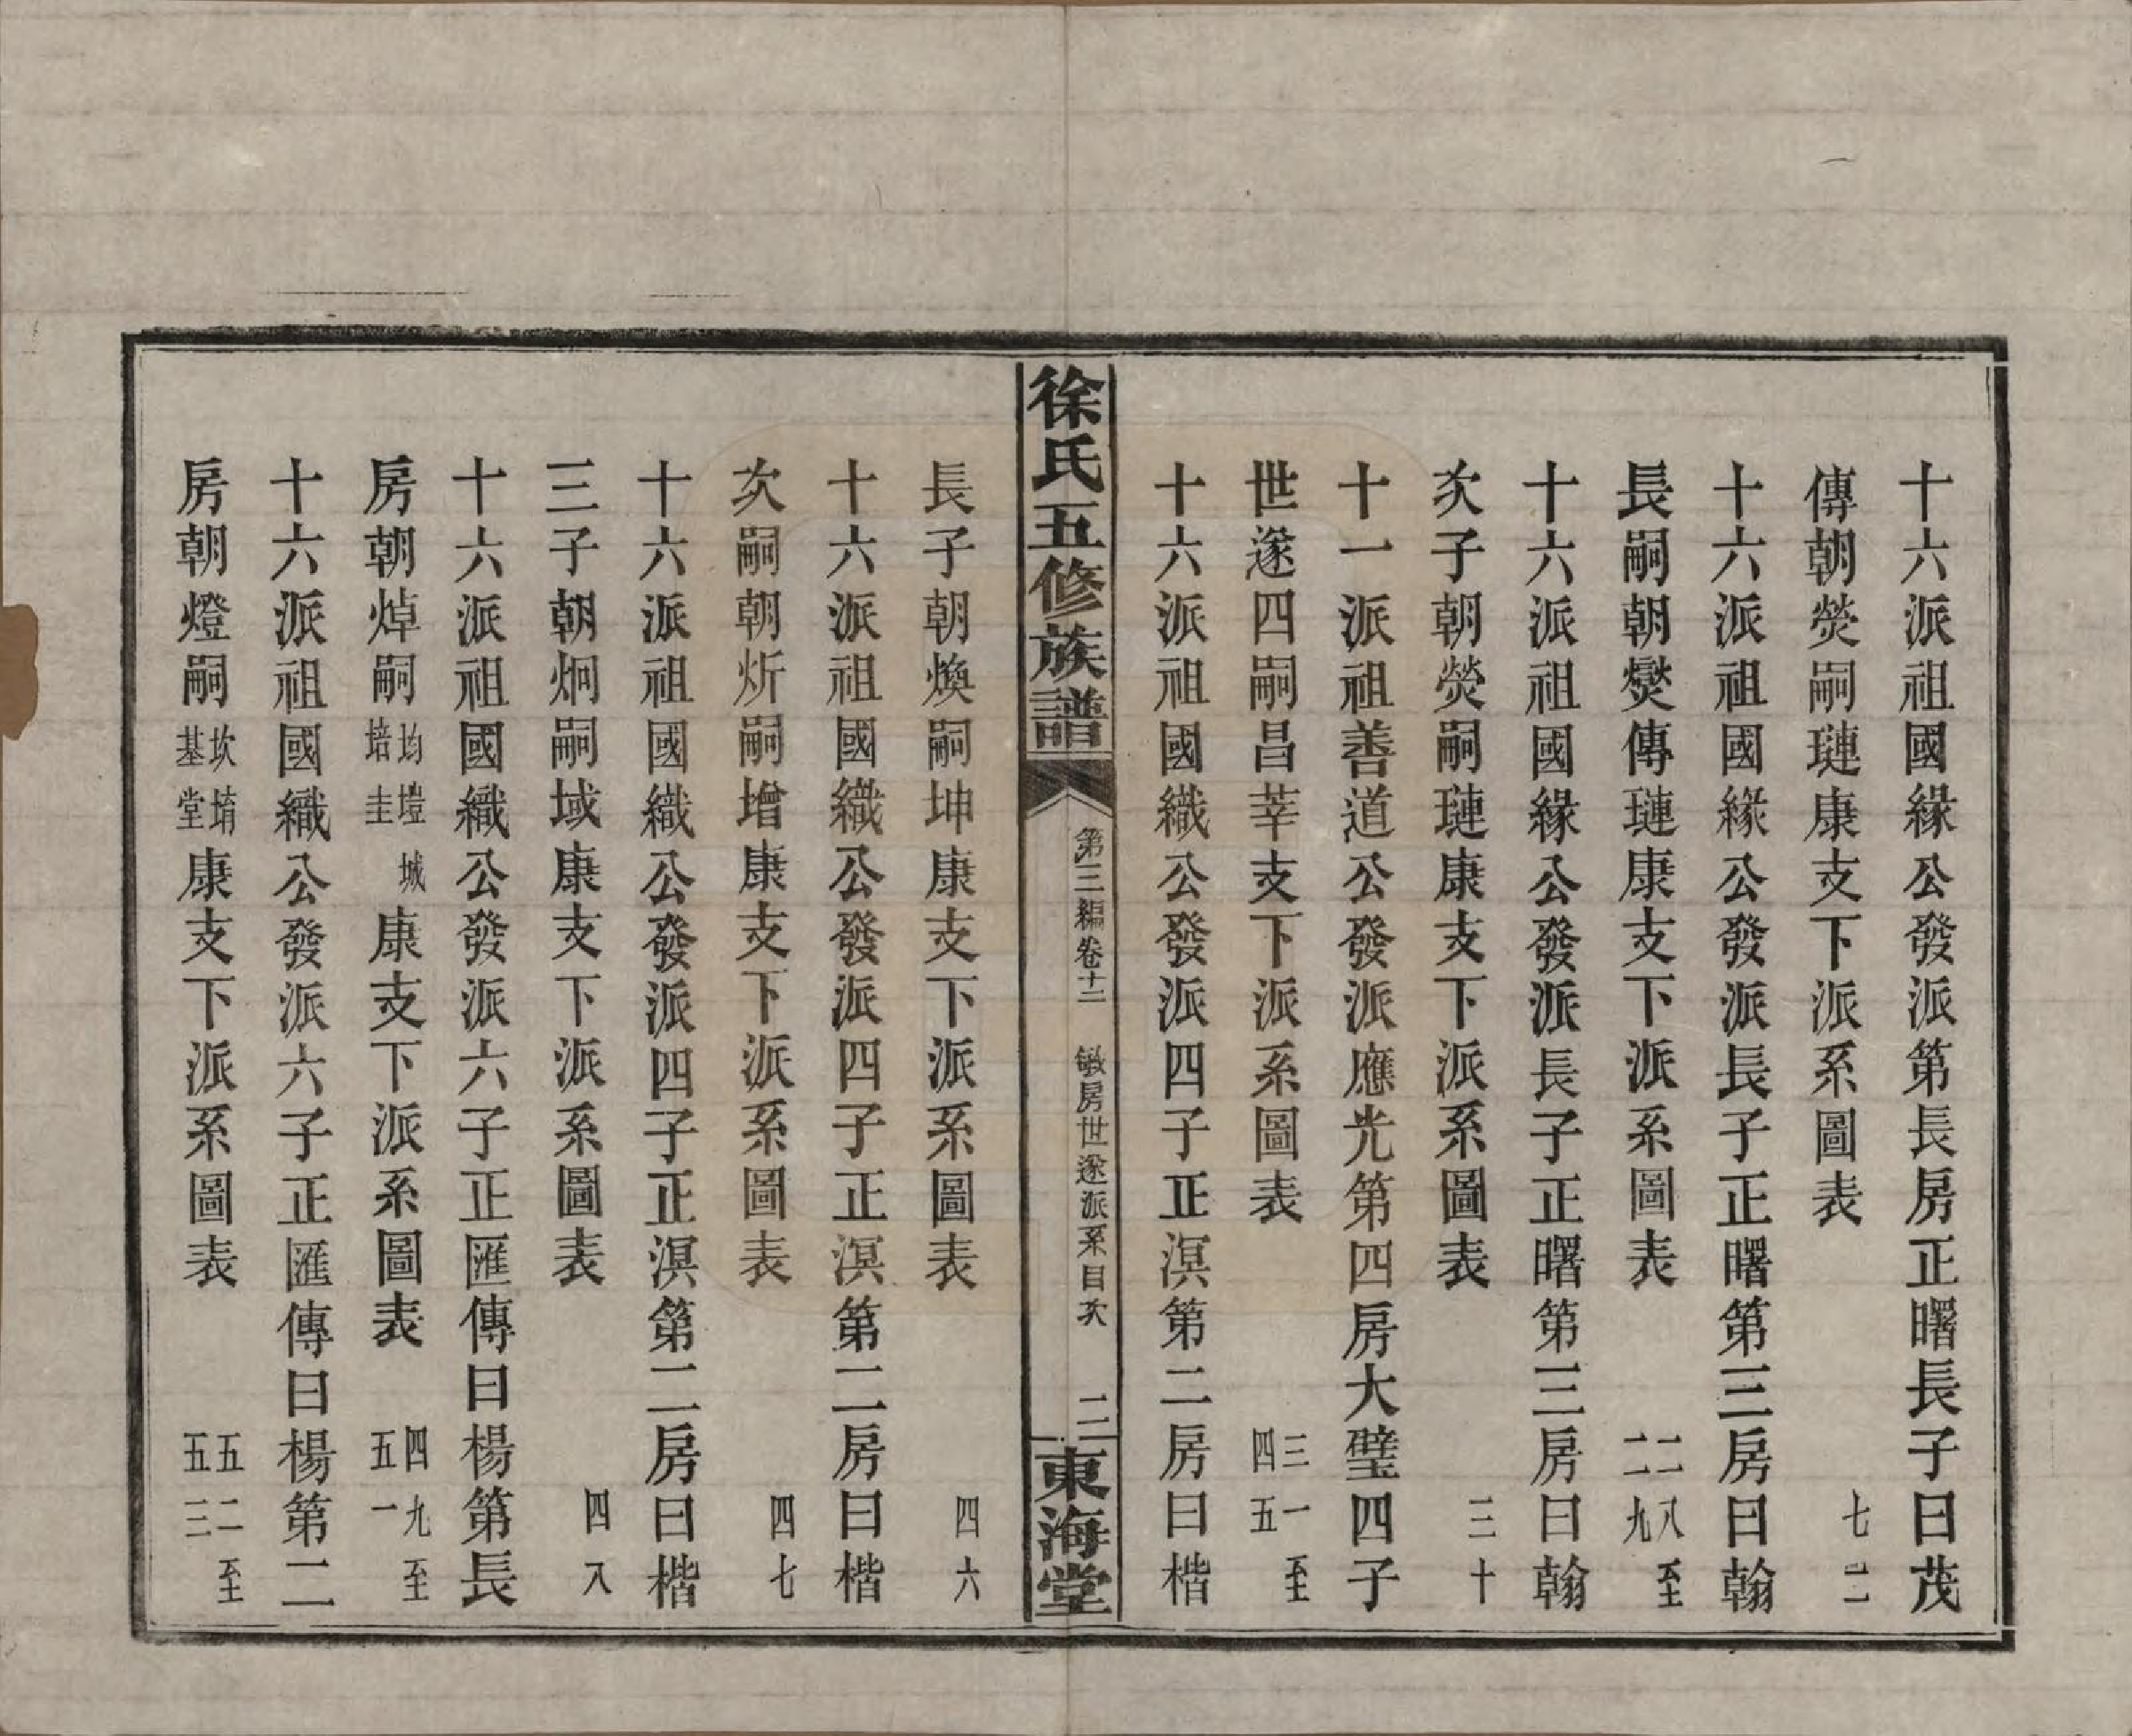 十六派祖國緣公發派第長房正曙長子曰茂
傳朝熒嗣璉康支下派系圖表 二七
十六派祖國緣公發派長子正曙第三房曰翰
長嗣朝爕傳璉康支下派系圖表 二八至二九
十六派祖國緣公發派長子正曙第三房曰翰
次子朝熒嗣璉康支下派系圖表 三十
十一派祖善道公發派應光第四房大璧四子
世邃四嗣昌莘支下派系圖表 三一至四五
十六派祖國織公發派四子正溟第二房曰楷
徐氏五修族譜 第三編卷十二 敏房世邃派系目次 二 東海堂
長子朝煥嗣坤康支下派系圖表 四六
十六派祖國織公發派四子正溟第二房曰楷
次嗣朝炘嗣增康支下派系圖表 四七
十六派祖國織公發派四子正溟第二房曰楷
三子朝炯嗣域康支下派系圖表 四八
十六派祖國織公發派六子正匯傳曰楊第長
房朝焯嗣均塏城培圭康支下派系圖表 四九至五一
十六派祖國織公發派六子正匯傳曰楊第二
房朝燈嗣坎堉基堂康支下派系圖表 五二至五三